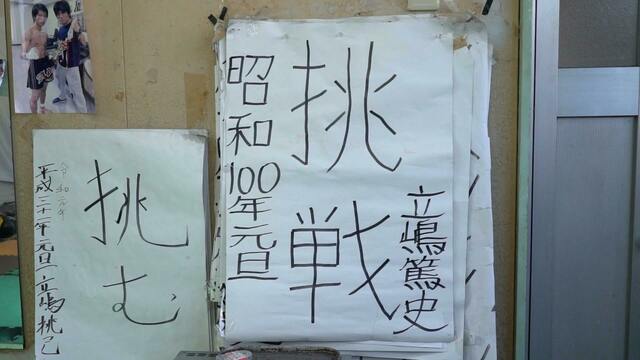 立嶋篤史
挑戦
昭和100年元旦
挑む
令和元年
平成三十一年元旦 立嶋挑己